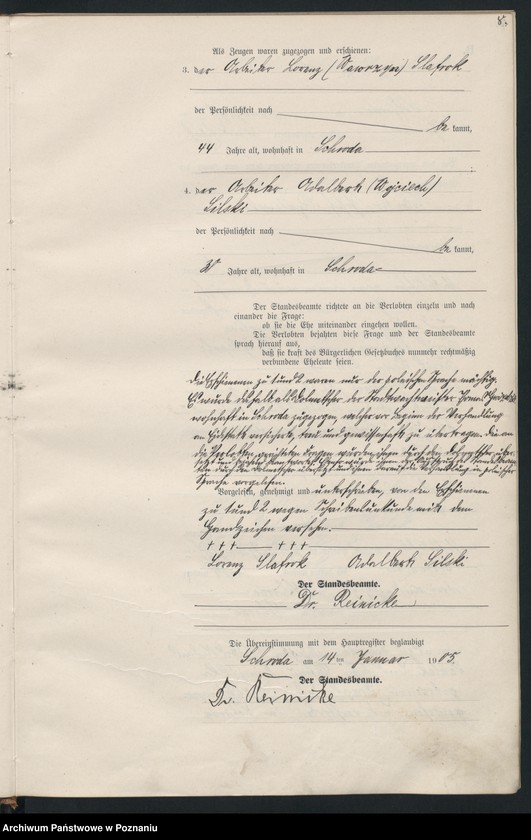 8.
Als Zeugen waren zugezogen und erschienen:
3. der Arbeiter Lorenz (Wawrzyn) Slafrok
der Persönlichkeit nach
be kannt,
44 Jahre alt, wohnhaft in Schroda
4. der Arbeiter Adalbert (Wojciech)
Silski
der Persönlichkeit nach
be kannt,
30 Jahre alt, wohnhaft in Schroda
Der Standesbeamte richtete an die Verlobten einzeln und nach
einander die Frage:
ob sie die Ehe miteinander eingehen wollen.
Die Verlobten bejahten diese Frage und der Standesbeamte
sprach hierauf aus,
daß sie kraft des Bürgerlichen Gesetzbuchs nunmehr rechtmäßig
verbundene Eheleute seien.
Die Erschienenen zu 1 und 2 waren nur der polnischen Sprache mächtig.
Es wurde deshalb als Dolmetscher der Stadtwachtmeister
wohnhaft in Schroda zugezogen, welcher vor Beginn der Verhandlung
an Eidesstatt versicherte, treu und gewissenhaft zu übertragen. Die an
die Verlobten gerichteten Fragen wurden ihnen durch den Dolmetscher über-
den Dolmetscher übersetzt und ihnen die Verhandlung in polnischer
Sprache vorgelesen.
Vorgelesen, genehmigt und unterschrieben, von den Erschienenen
zu 1 und 2 wegen Schreibensunkunde mit dem
Handzeichen versehen.
+ + + + + +
Lorenz Slafrok Adalbert Silski
Der Standesbeamte.
Dr. Reinicke
Die Übereinstimmung mit dem Hauptregister beglaubigt
Schroda am 14ten Januar 1905.
Der Standesbeamte.
Dr. Reinicke
Archiwum Państwowe w Poznaniu